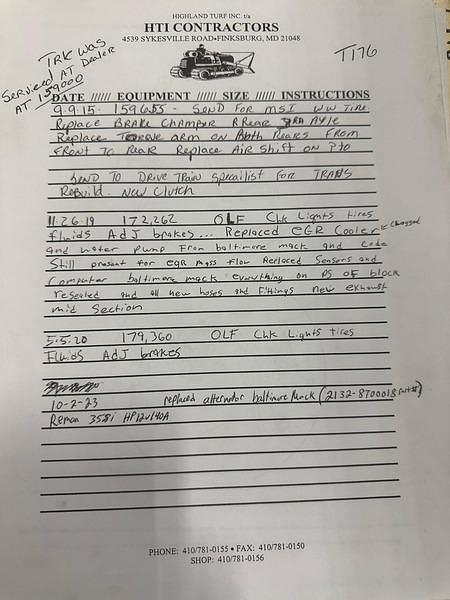 HIGHLAND TURF INC. t/a
HTI CONTRACTORS
4539 SYKESVILLE ROAD•FINKSBURG, MD 21048
TRK WAS
Serviced AT Dealer
AT 159000
T176
DATE ////// EQUIPMENT ////// SIZE ////// INSTRUCTIONS
9-9-15- 159655 - SEND FOR MSI WW Tire
Replace BRAKE CHAMPER R Rear 3RD AXle
Replace TORQUE ARM on Both Rears From
FRONT To Rear Replace Air Shift on Pto
SEND To Drive Train Specialist for TRANS
Rebuild. New Clutch
11-26-19 172,262 OLF Chk Lights tires
fluids Adj brakes... Replaced eGR Cooler clogged
and water pump From baltimore mack and code
Still present for egR mass flow Replaced Sensors and
Computer baltimore mack everything on PS OF block
resealed and all new hoses and fittings new exhaust
mid Section
5-5-20 179,360 OLF Chk Lights tires
Fluids Adj brakes
10-2-23 replaced alternator baltimore Mack (2132-8700018 Part#)
Reman 35Si HP12V140A
PHONE: 410/781-0155 • FAX: 410/781-0150
SHOP: 410/781-0156